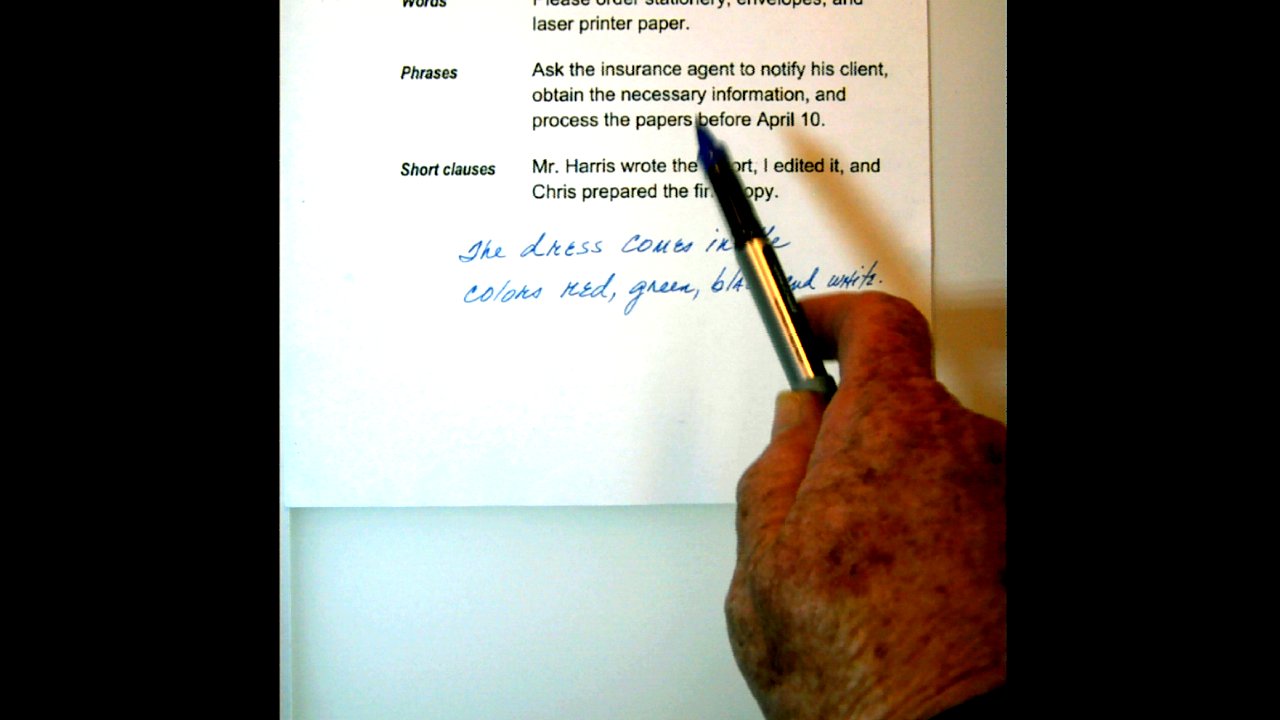 Words Please order stationery, envelopes, and
laser printer paper.
Phrases Ask the insurance agent to notify his client,
obtain the necessary information, and
process the papers before April 10.
Short clauses Mr. Harris wrote the ort, I edited it, and
Chris prepared the fin opy.
The dress comes in the
colors red, green, bla and white.